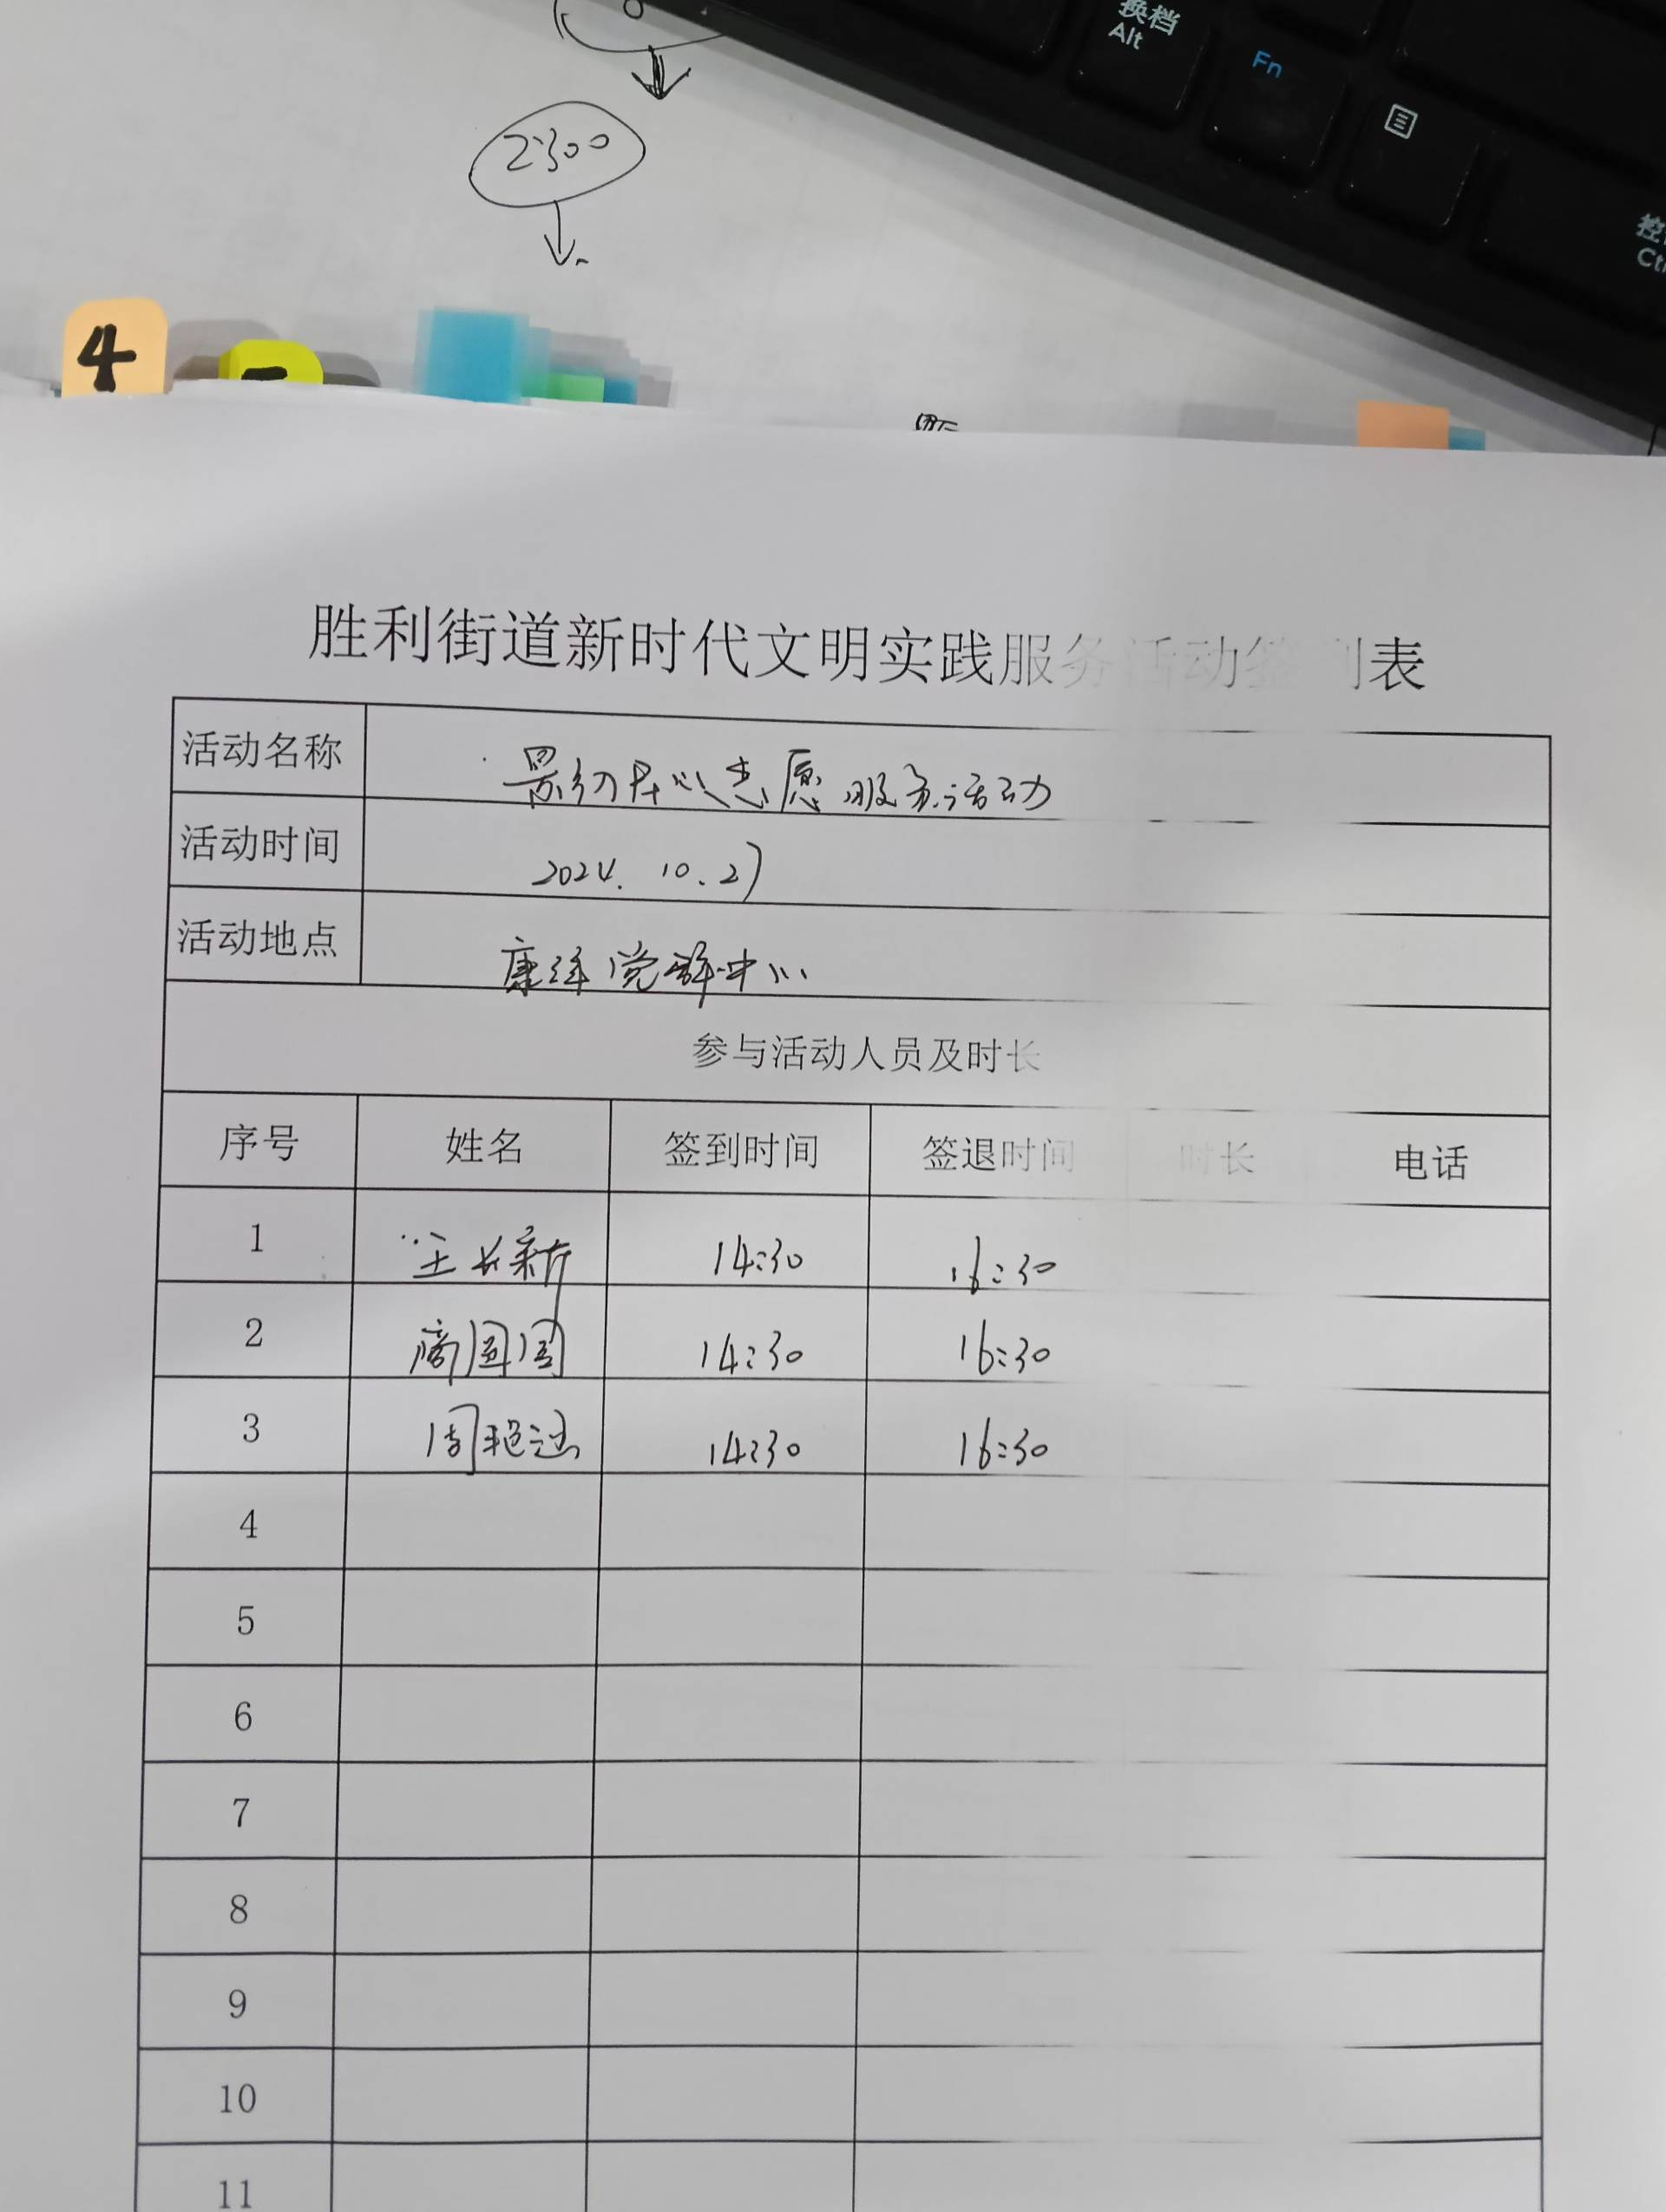 换档
Alt
Fn
Ctrl
2:300
4
胜利街道新时代文明实践服务活动签到表
活动名称 志愿服务活动
活动时间 2024.10.27
活动地点 党群中心
参与活动人员及时长
序号 姓名 签到时间 签退时间 时长 电话
1 14:30 16:30
2 商圆圆 14:30 16:30
3 周艳 14:30 16:30
4
5
6
7
8
9
10
11